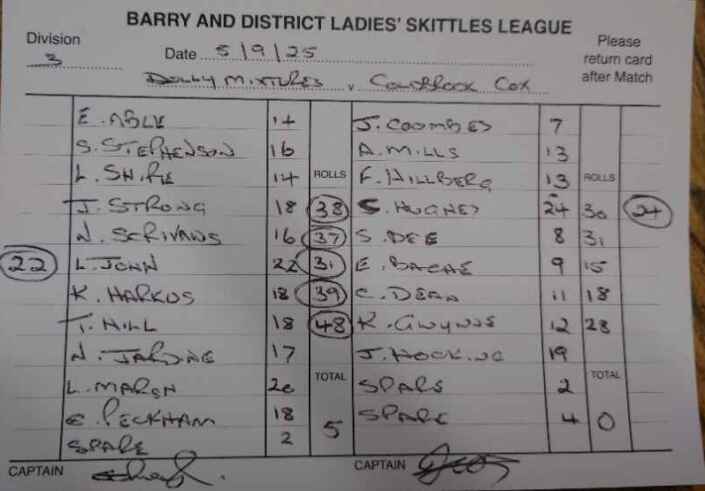 BARRY AND DISTRICT LADIES' SKITTLES LEAGUE
Division 3 Date 5/9/25 Please return card after Match
DOLLY MIXTURES v COLDBROOK COX
E. ABLE 14 J. COOMBES 7
S. STEPHENSON 16 A. MILLS 13
L. SHIRE 14 ROLLS F. HILLBERG 13 ROLLS
J. STRONG 18 38 S. HUGHES 24 30 24
N. SCRIVANS 16 37 S. DEE 8 31
22 L. JOHN 22 31 E. 9 15
K. HARKUS 18 39 C. DERA 11 18
T. HILL 18 48 K. GWYNNE 12 28
N. JARDINE 17 J. HOCKING 19
L. MARSH 20 TOTAL SPARE 2 TOTAL
E. PECKHAM 18 5 SPARE 4 0
SPARE 2
CAPTAIN CAPTAIN